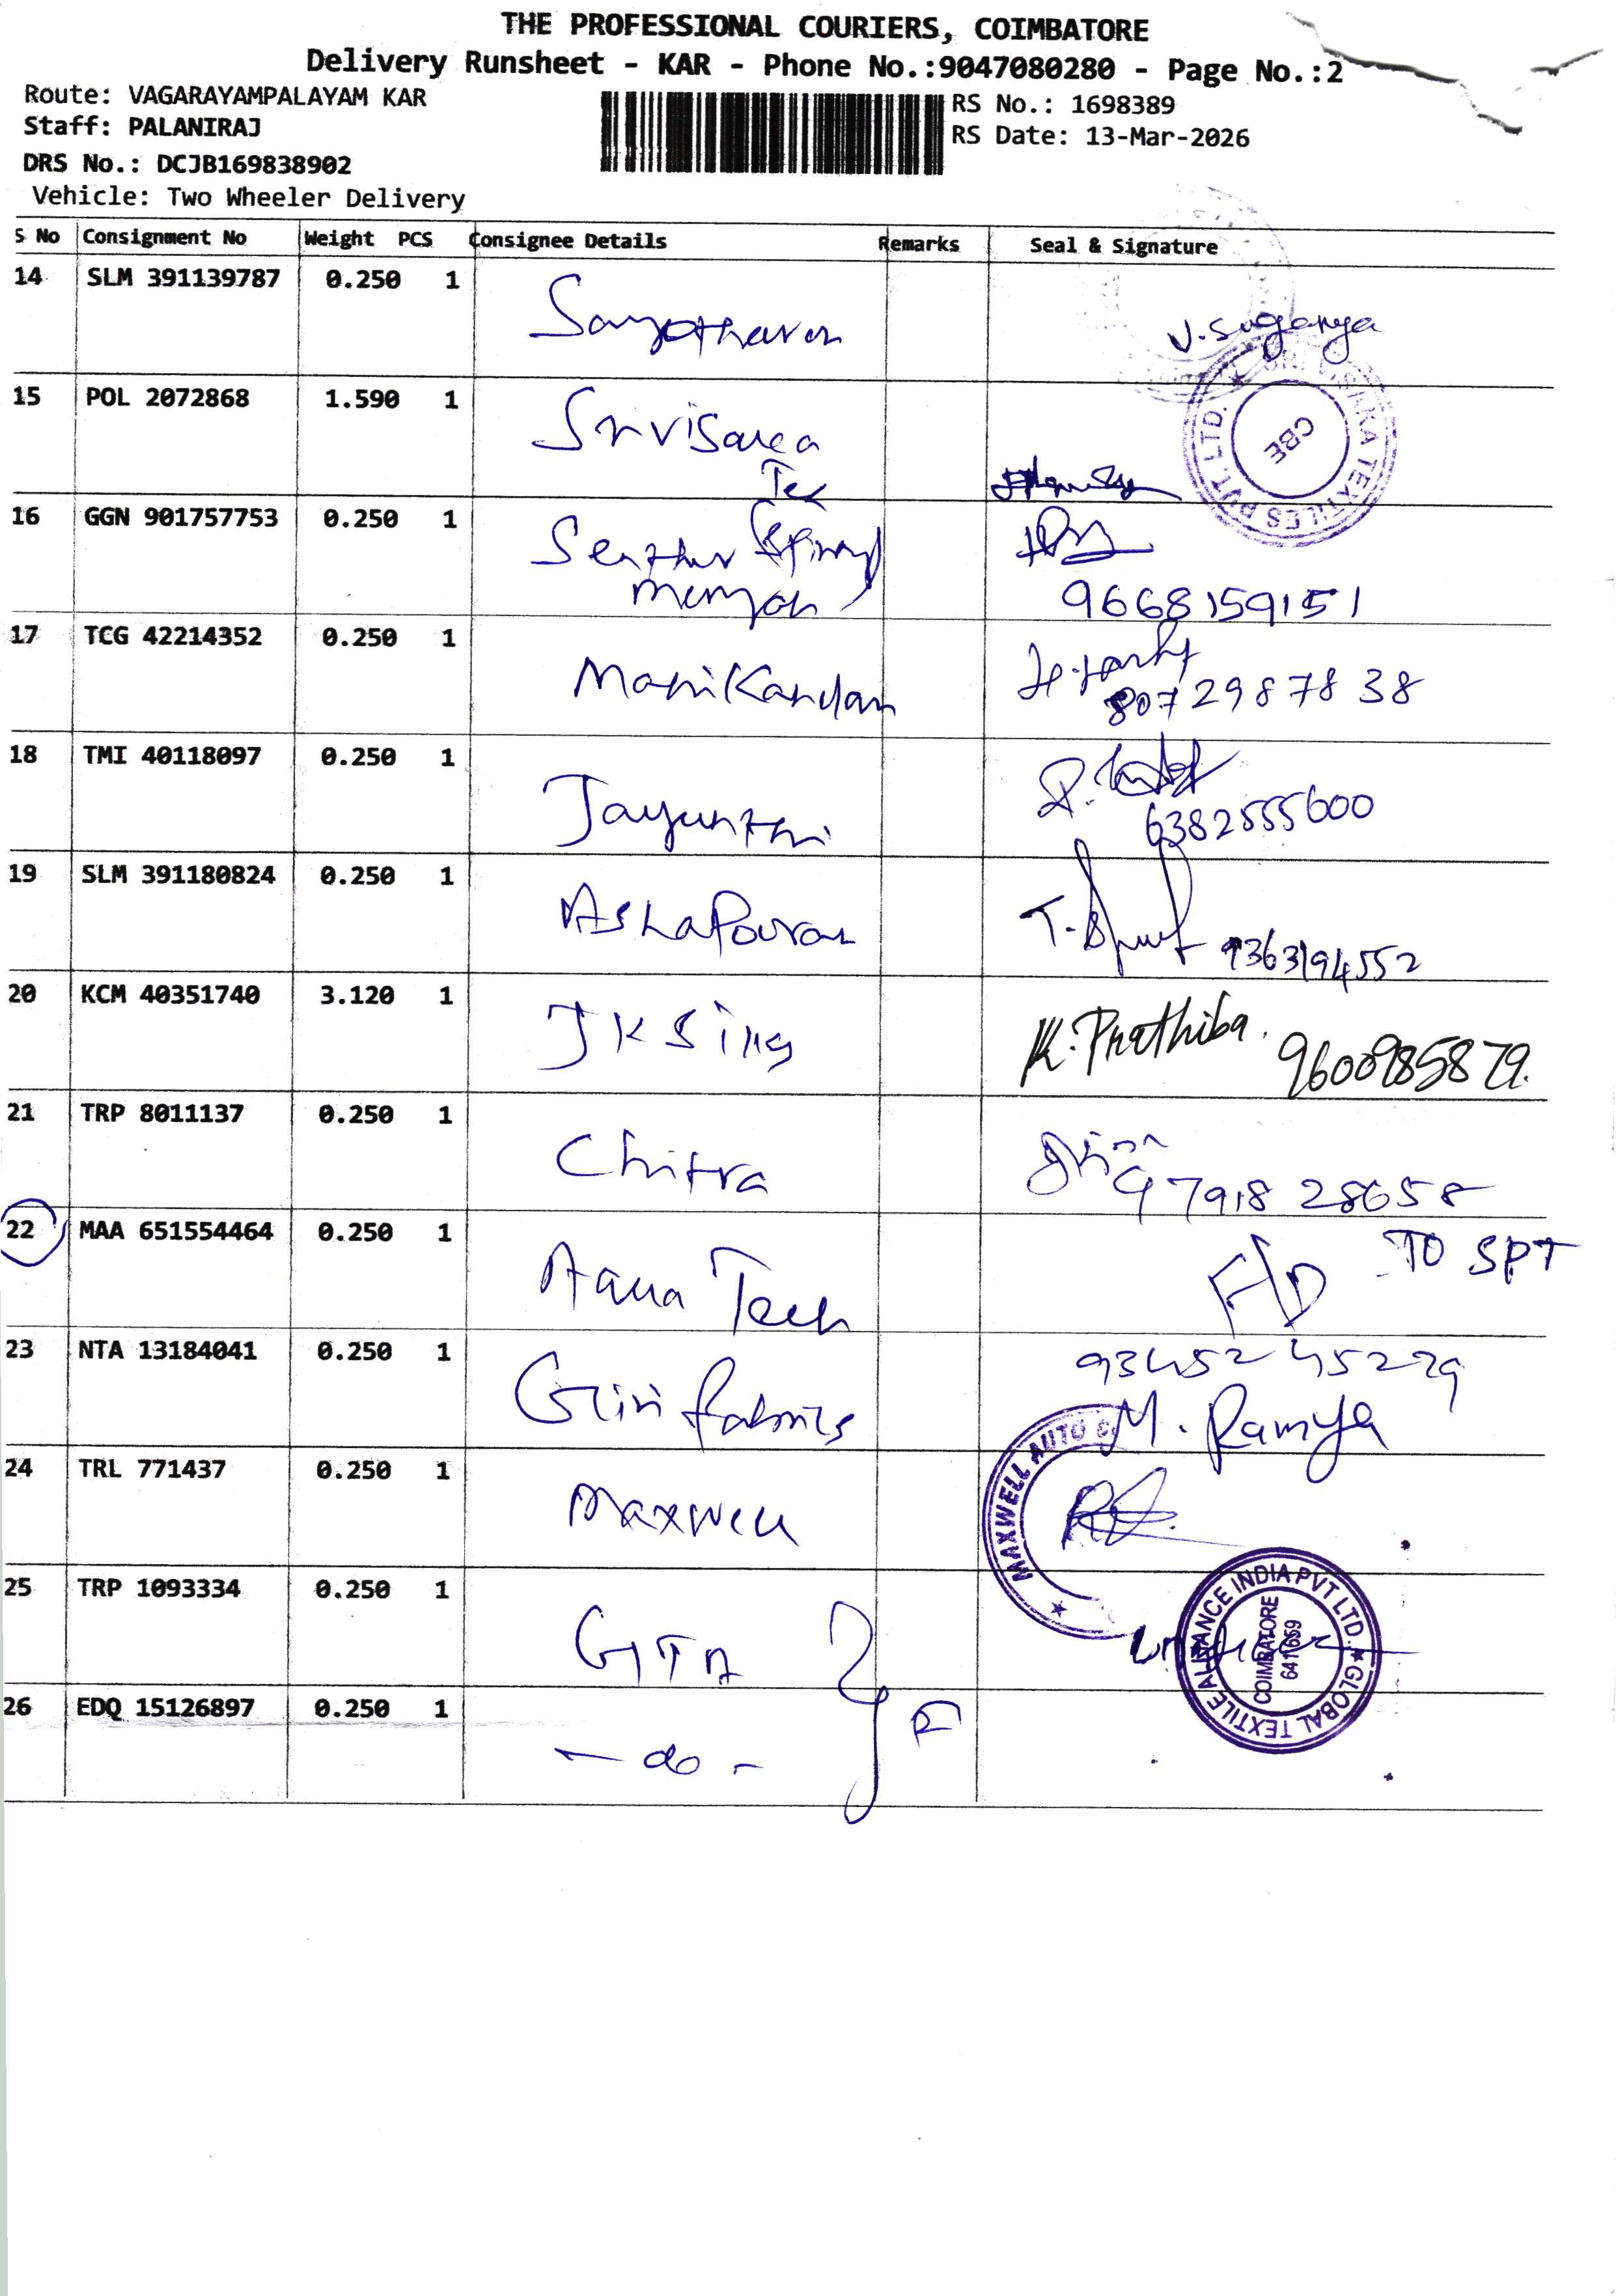 THE PROFESSIONAL COURIERS, COIMBATORE
Delivery Runsheet - KAR - Phone No.:9047080280 - Page No.:2
Route: VAGARAYAMPALAYAM KAR
RS No.: 1698389
Staff: PALANIRAJ
RS Date: 13-Mar-2026
DRS No.: DCJB169838902
Vehicle: Two Wheeler Delivery
S No Consignment No Weight PCS Consignee Details Remarks Seal & Signature
14 SLM 391139787 0.250 1
V. Suganya
15 POL 2072868 1.590 1
Tex
TEXTILES PVT. LTD.
CBE
16 GGN 901757753 0.250 1
9668159151
17 TCG 42214352 0.250 1
Manikandan
8072987838
18 TMI 40118097 0.250 1
Jayanthi
6382555600
19 SLM 391180824 0.250 1
AshaPouran
9363194552
20 KCM 40351740 3.120 1
JK Sing
K. Prathiba. 9600985879.
21 TRP 8011137 0.250 1
Chitra
9791828658
22 MAA 651554464 0.250 1
Aqua Tech
F/D TO SPT
23 NTA 13184041 0.250 1
Giri fabrics
9345245229
M. Ramya
24 TRL 771437 0.250 1
Maxwell
MAXWELL AUTO
25 TRP 1093334 0.250 1
GTA
GLOBAL TEXTILE ALLIANCE INDIA PVT LTD.
COIMBATORE
641659
26 EDQ 15126897 0.250 1
- do -